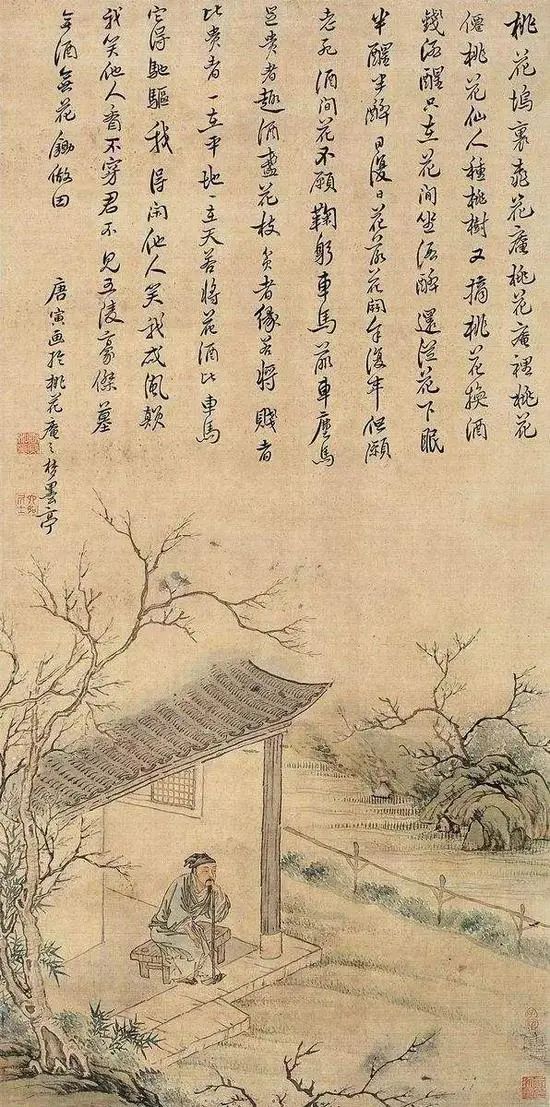 桃花塢裏桃花庵桃花庵裡桃花
僊桃花仙人種桃樹又摘桃花換酒
錢酒醒只在花間坐酒醉還從花下眠
半醒半醉日復日花落花開年復年但願
老死酒間花不願鞠躬車馬前車塵馬
足貴者趣酒盞花枝貧者緣若將賤者
比貴者一在平地一在天若將花酒比車馬
它得馳驅我得閑他人笑我忒風顛
我笑他人看不穿君不見五陵豪傑墓
無酒無花鋤做田
唐寅画於桃花庵之夢墨亭